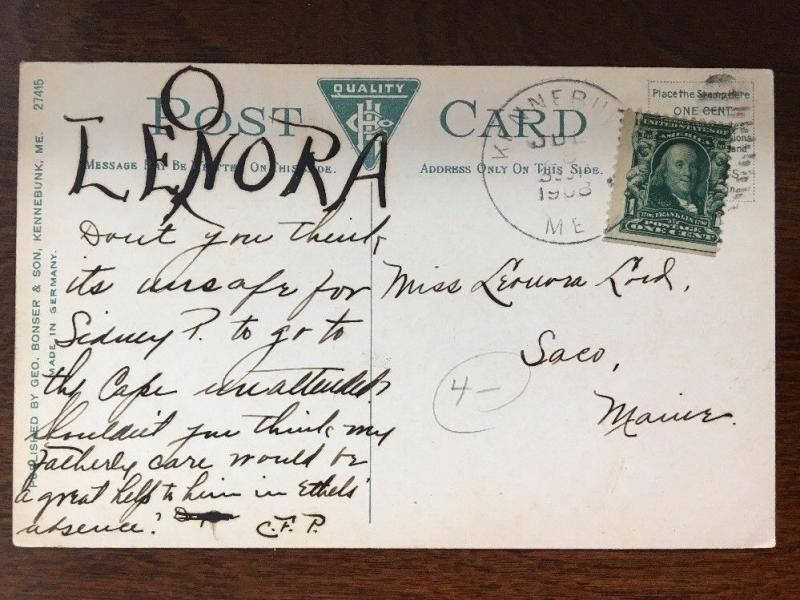 QUALITY
POST CARD
LEONORA
MESSAGE MAY BE WRITTEN ON THIS SIDE.
ADDRESS ONLY ON THIS SIDE.
Place the Stamp Here
ONE CENT
KENNEBUN
1908
ME
UNITED STATES OF
AMERICA
FRANKLIN
POSTAGE
ONE CENT
PUBLISHED BY GEO. BONSER & SON, KENNEBUNK, ME. 27415
MADE IN GERMANY.
Don't you think
its unsafe for
Sidney P. to go to
the Cape unattended
Shouldn't you think my
Fatherly care would be
a great help to him in Ethels'
absence?
C.F.P.
Miss Leonora Lord,
Saco,
Maine.
4-